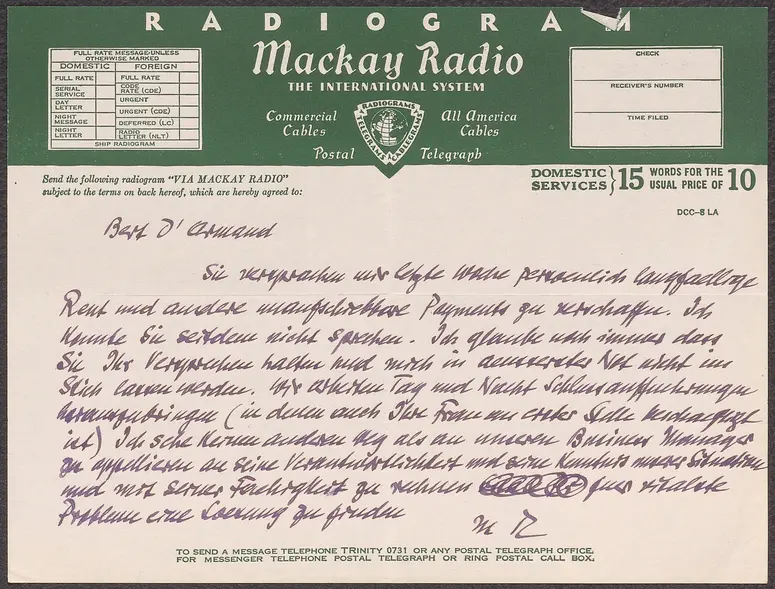 RADIOGRAM
FULL RATE MESSAGE UNLESS
OTHERWISE MARKED
DOMESTIC FOREIGN
FULL RATE FULL RATE
SERIAL SERVICE CODE RATE (CDE)
DAY LETTER URGENT
URGENT (CDE)
NIGHT MESSAGE DEFERRED (LC)
NIGHT LETTER RADIO LETTER (NLT)
SHIP RADIOGRAM
Mackay Radio
THE INTERNATIONAL SYSTEM
Commercial Cables
All America Cables
RADIOGRAMS
TELEGRAMS CABLEGRAMS
Postal Telegraph
CHECK
RECEIVER'S NUMBER
TIME FILED
Send the following radiogram "VIA MACKAY RADIO"
subject to the terms on back hereof, which are hereby agreed to:
DOMESTIC SERVICES } 15 WORDS FOR THE USUAL PRICE OF 10
DCC–8 LA
Bert D'Armand
Sie versprachen mir letzte Woche persoenlich langfaellige
Rent und andere unaufschiebbare Payments zu verschaffen. Ich
konnte Sie seitdem nicht sprechen. Ich glaube noch immer dass
Sie Ihr Versprechen halten und mich in aeusserster Not nicht im
Stich lassen werden. Wir arbeiten Tag und Nacht Schlussauffuehrungen
herauszubringen (in denen auch Ihre Frau an erster Stelle beschaeftigt
ist) Ich sehe keinen anderen Weg als an unseren Business Manager
zu appellieren an seine Verantwortlichkeit und seine Kenntnis unserer Situation
und mit seiner Faehigkeit zu rechnen fuer vitalste
Probleme eine Loesung zu finden
M R
TO SEND A MESSAGE TELEPHONE TRINITY 0731 OR ANY POSTAL TELEGRAPH OFFICE.
FOR MESSENGER TELEPHONE POSTAL TELEGRAPH OR RING POSTAL CALL BOX.